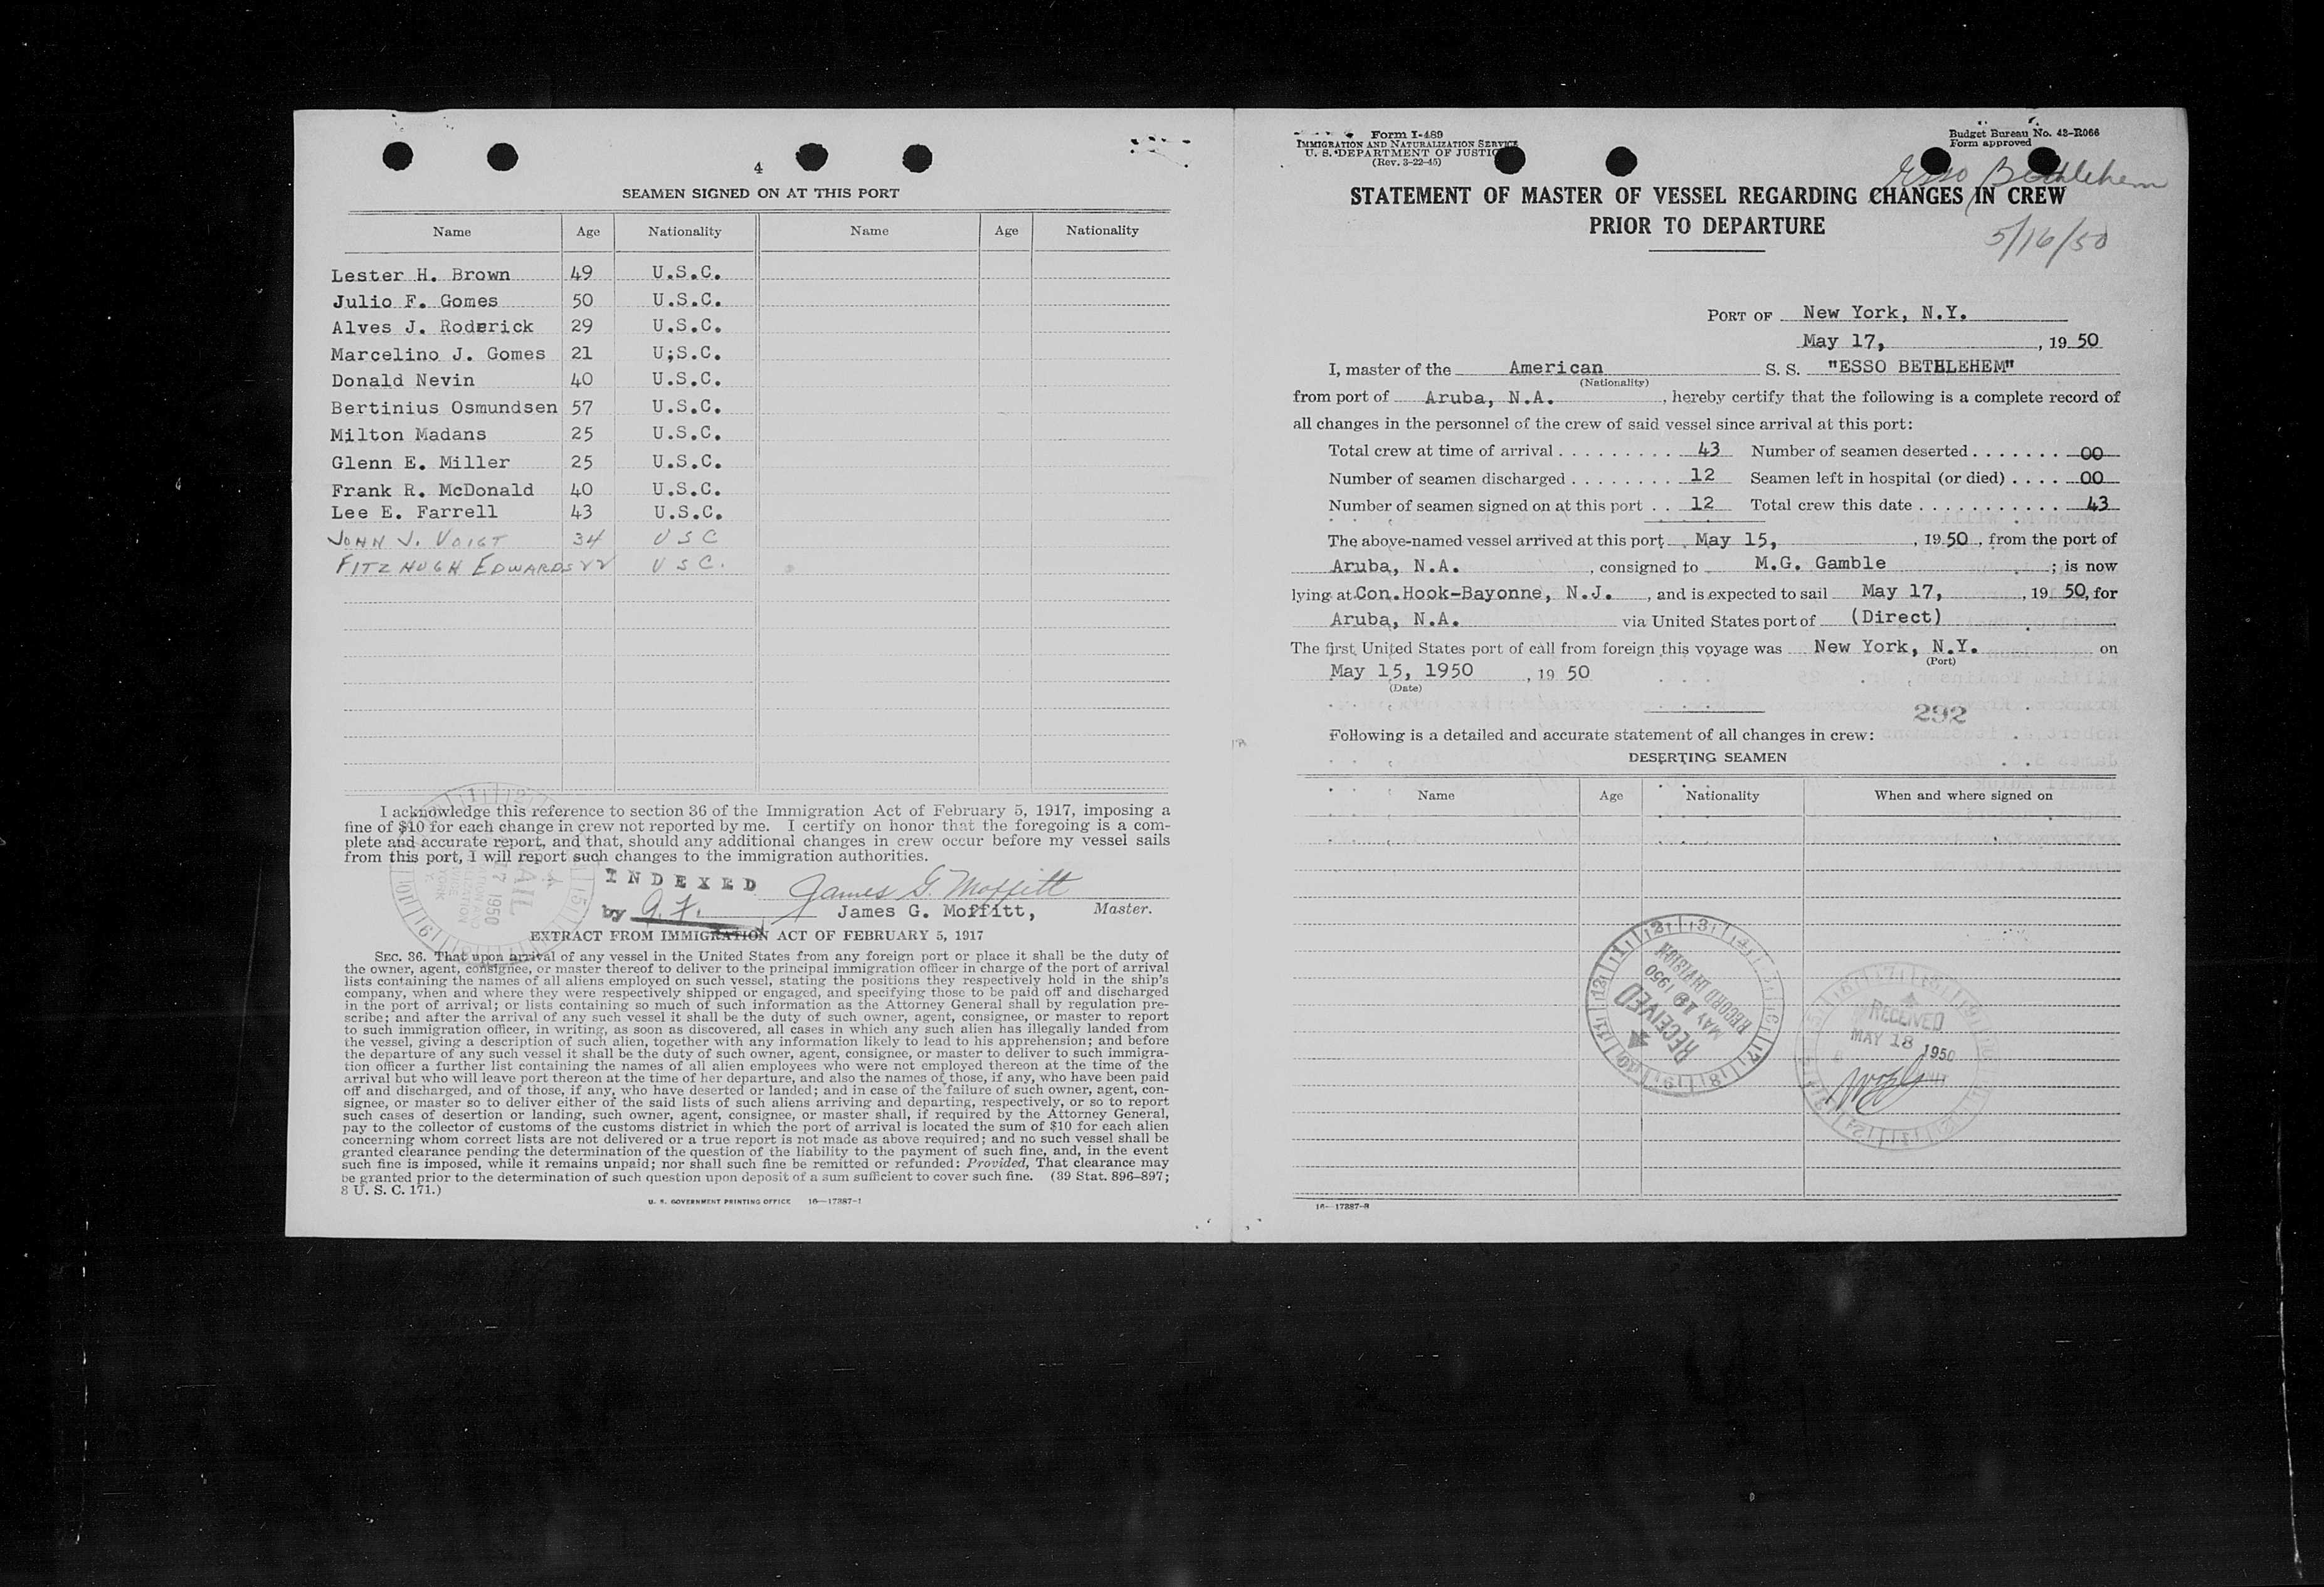 4
SEAMEN SIGNED ON AT THIS PORT
Name Age Nationality Name Age Nationality
Lester H. Brown 49 U.S.C.
Julio F. Gomes 50 U.S.C.
Alves J. Roderick 29 U.S.C.
Marcelino J. Gomes 21 U;S.C.
Donald Nevin 40 U.S.C.
Bertinius Osmundsen 57 U.S.C.
Milton Madans 25 U.S.C.
Glenn E. Miller 25 U.S.C.
Frank R. McDonald 40 U.S.C.
Lee E. Farrell 43 U.S.C.
JOHN J. VOIGT 34 U S C
FITZHUGH EDWARDS 22 U S C.
I acknowledge this reference to section 36 of the Immigration Act of February 5, 1917, imposing a
fine of $10 for each change in crew not reported by me. I certify on honor that the foregoing is a com-
plete and accurate report, and that, should any additional changes in crew occur before my vessel sails
from this port, I will report such changes to the immigration authorities.
INDEXED James G. Moffitt
by James G. Moffitt, Master.
EXTRACT FROM IMMIGRATION ACT OF FEBRUARY 5, 1917
SEC. 36. That upon arrival of any vessel in the United States from any foreign port or place it shall be the duty of
the owner, agent, consignee, or master thereof to deliver to the principal immigration officer in charge of the port of arrival
lists containing the names of all aliens employed on such vessel, stating the positions they respectively hold in the ship's
company, when and where they were respectively shipped or engaged, and specifying those to be paid off and discharged
in the port of arrival; or lists containing so much of such information as the Attorney General shall by regulation pre-
scribe; and after the arrival of any such vessel it shall be the duty of such owner, agent, consignee, or master to report
to such immigration officer, in writing, as soon as discovered, all cases in which any such alien has illegally landed from
the vessel, giving a description of such alien, together with any information likely to lead to his apprehension; and before
the departure of any such vessel it shall be the duty of such owner, agent, consignee, or master to deliver to such immigra-
tion officer a further list containing the names of all alien employees who were not employed thereon at the time of the
arrival but who will leave port thereon at the time of her departure, and also the names of those, if any, who have been paid
off and discharged, and of those, if any, who have deserted or landed; and in case of the failure of such owner, agent, con-
signee, or master so to deliver either of the said lists of such aliens arriving and departing, respectively, or so to report
such cases of desertion or landing, such owner, agent, consignee, or master shall, if required by the Attorney General,
pay to the collector of customs of the customs district in which the port of arrival is located the sum of $10 for each alien
concerning whom correct lists are not delivered or a true report is not made as above required; and no such vessel shall be
granted clearance pending the determination of the question of the liability to the payment of such fine, and, in the event
such fine is imposed, while it remains unpaid; nor shall such fine be remitted or refunded: Provided, That clearance may
be granted prior to the determination of such question upon deposit of a sum sufficient to cover such fine. (39 Stat. 896-897;
8 U. S. C. 171.)
U. S. GOVERNMENT PRINTING OFFICE 16-17887-1
Form I-489
IMMIGRATION AND NATURALIZATION SERVICE
U. S. DEPARTMENT OF JUSTICE
(Rev. 3-22-45)
Budget Bureau No. 43-R066
Form approved
Esso Bethlehem
STATEMENT OF MASTER OF VESSEL REGARDING CHANGES IN CREW
PRIOR TO DEPARTURE
5/16/50
PORT OF New York, N.Y.
May 17, , 19 50
I, master of the American S. S. "ESSO BETHLEHEM"
(Nationality)
from port of Aruba, N.A. , hereby certify that the following is a complete record of
all changes in the personnel of the crew of said vessel since arrival at this port:
Total crew at time of arrival . . . . . . . . . . 43 Number of seamen deserted . . . . . . . 00
Number of seamen discharged . . . . . . . . 12 Seamen left in hospital (or died) . . . . 00
Number of seamen signed on at this port . . 12 Total crew this date . . . . . . . . . . . . 43
The above-named vessel arrived at this port May 15, , 19 50 , from the port of
Aruba, N.A. , consigned to M.G. Gamble ; is now
lying at Con.Hook-Bayonne, N.J. , and is expected to sail May 17, , 19 50, for
Aruba, N.A. via United States port of (Direct)
The first United States port of call from foreign this voyage was New York, N.Y. on
(Port)
May 15, 1950 , 19 50
(Date)
292
Following is a detailed and accurate statement of all changes in crew:
DESERTING SEAMEN
Name Age Nationality When and where signed on
RECEIVED
MAY 1950
RECORD DIVISION
RECEIVED
MAY 18 1950
16-17887-2